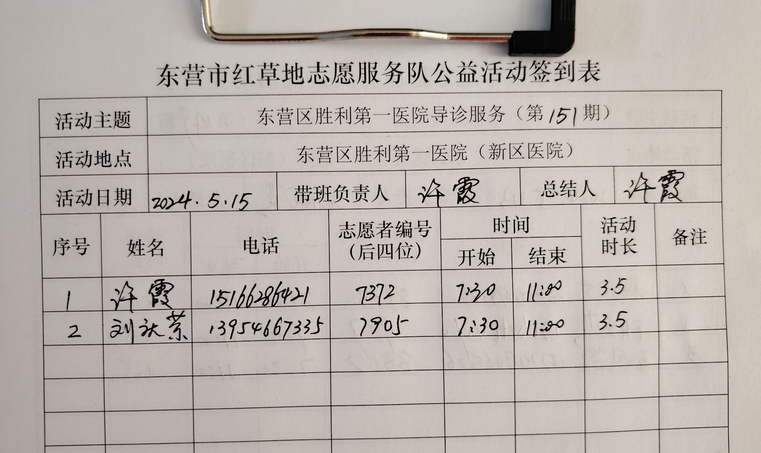 东营市红草地志愿服务队公益活动签到表
活动主题 东营区胜利第一医院导诊服务（第151期）
活动地点 东营区胜利第一医院（新区医院）
活动日期 2024.5.15 带班负责人 许霞 总结人 许霞
序号 姓名 电话 志愿者编号（后四位） 时间 开始 结束 活动时长 备注
1 许霞 15166286421 7372 7:30 11:00 3.5
2 刘 荣 13954667335 7905 7:30 11:00 3.5